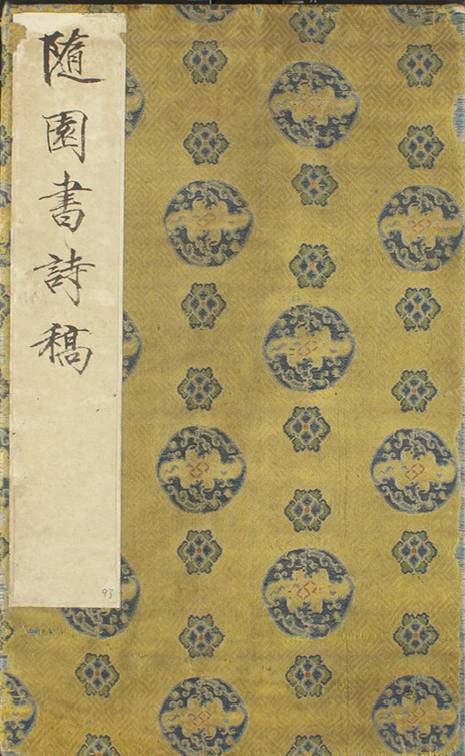 隨園書詩稿
93